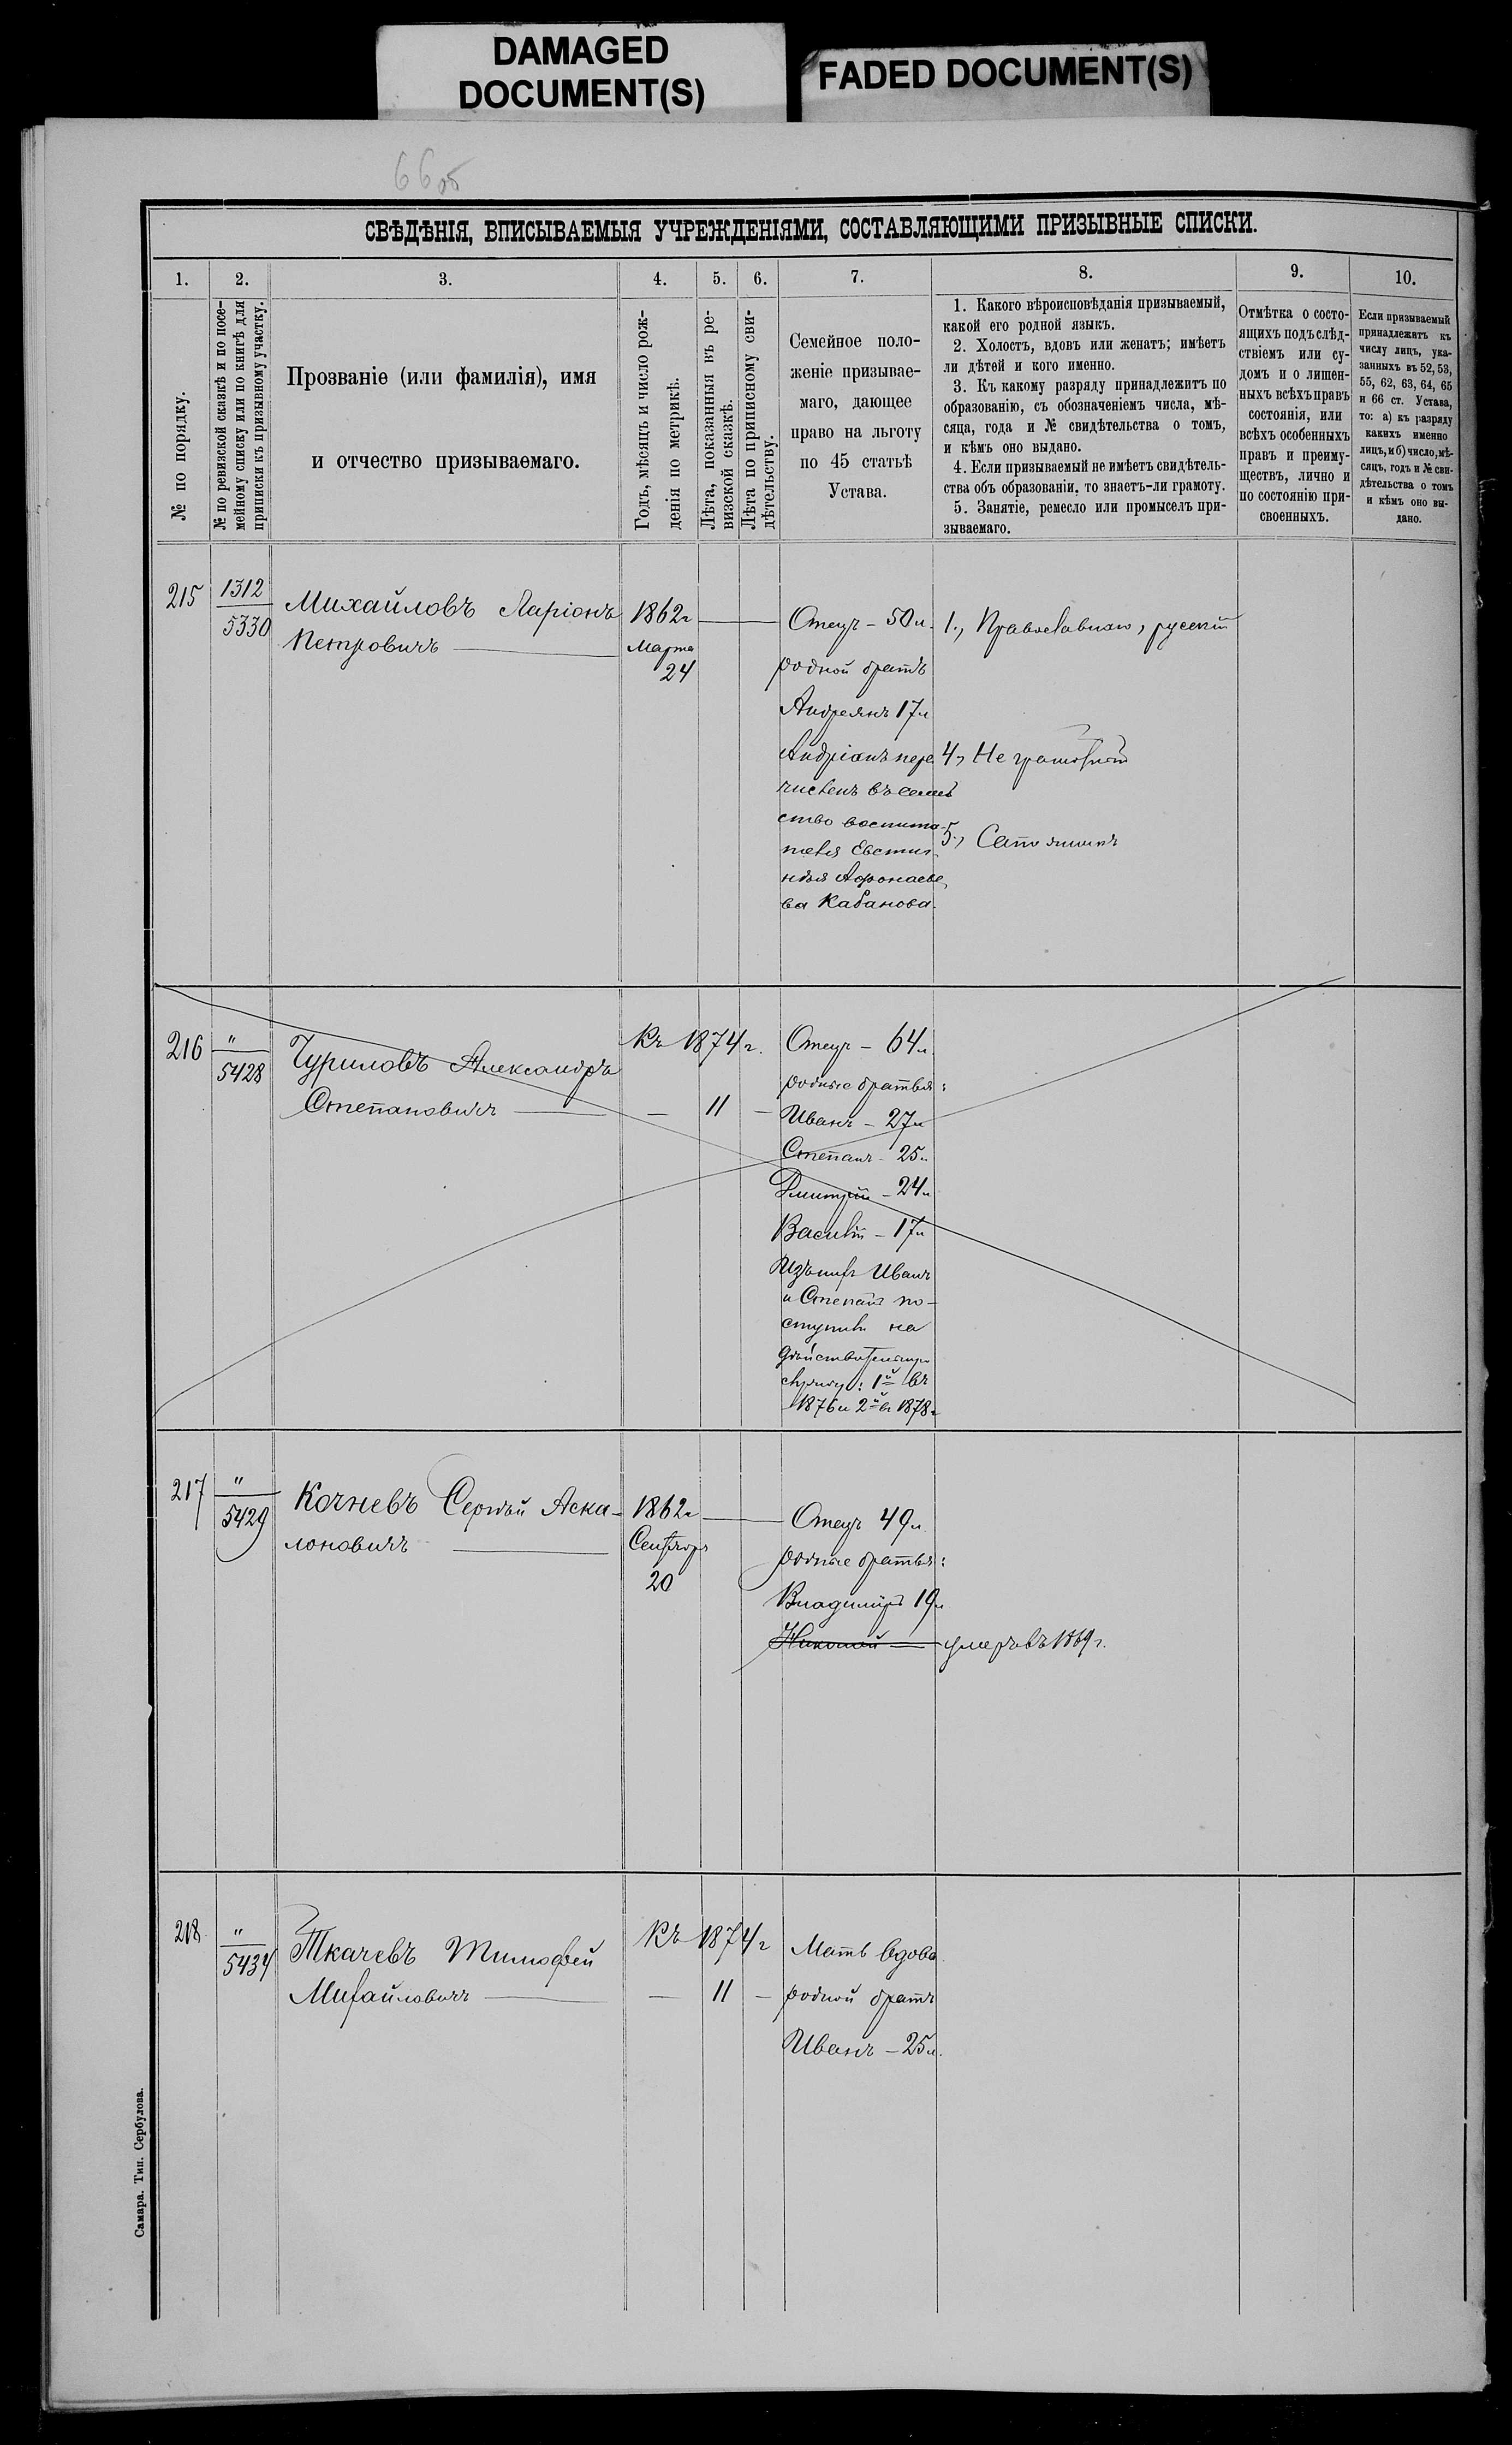 DAMAGED
DOCUMENT(S)
FADED DOCUMENT(S)
66об
СВѢДѢНІЯ, ВПИСЫВАЕМЫЯ УЧРЕЖДЕНІЯМИ, СОСТАВЛЯЮЩИМИ ПРИЗЫВНЫЕ СПИСКИ.
1.
2.
3.
4.
5.
6.
7.
8.
9.
10.
№ по порядку.
№ по ревизской сказкѣ и по посе-
мейному списку или по книгѣ для
приписки къ призывному участку.
Прозваніе (или фамилія), имя
и отчество призываемаго.
Годъ, мѣсяцъ и число рож-
денія по метрикѣ.
Лѣта, показанныя въ ре-
визской сказкѣ.
Лѣта по приписному сви-
дѣтельству.
Семейное поло-
женіе призывае-
маго, дающее
право на льготу
по 45 статьѣ
Устава.
1. Какого вѣроисповѣданія призываемый,
какой его родной языкъ.
2. Холостъ, вдовъ или женатъ; имѣетъ
ли дѣтей и кого именно.
3. Къ какому разряду принадлежитъ по
образованію, съ обозначеніемъ числа, мѣ-
сяца, года и № свидѣтельства о томъ,
и кѣмъ оно выдано.
4. Если призываемый не имѣетъ свидѣтель-
ства объ образованіи, то знаетъ-ли грамоту.
5. Занятіе, ремесло или промыселъ при-
зываемаго.
Отмѣтка о состо-
ящихъ подъ слѣд-
ствіемъ или су-
домъ и о лишен-
ныхъ всѣхъ правъ
состоянія, или
всѣхъ особенныхъ
правъ и преиму-
ществъ, лично и
по состоянію при-
своенныхъ.
Если призываемый
принадлежитъ къ
числу лицъ, ука-
занныхъ въ 52, 53,
55, 62, 63, 64, 65
и 66 ст. Устава,
то: а) къ разряду
какихъ именно
лицъ, и б) число, мѣ-
сяцъ, годъ и № сви-
дѣтельства о томъ
и кѣмъ оно вы-
дано.
215
1312
5330
Михайловъ Ларіонъ
Петровичъ
1862г
Марта
24
Отецъ - 50л.
родной братъ
Андреянъ 17л
Андріанъ пере
численъ въ семей
ство воспита-
теля Евстиг-
нѣя Афонасье
ва Кабанова.
1., Православнаго, русскій
4, Не грамотный
5., Сапожникъ
216
"
5428
Чуриловъ Александръ
Степановичъ
Къ 1874г.
— 11 —
Отецъ - 64л
родные братья:
Иванъ - 27л
Степанъ - 25л
Дмитрій - 24л
Василій - 17л
Изъ нихъ Иванъ
и Степанъ по-
ступили на
дѣйствительную
службу: 1й въ
1876и 2й въ 1878г
217
"
5429
Кочневъ Сергѣй Аска-
лоновичъ
1862г
Сентябр
20
Отецъ 49л
родные братья:
Владиміръ 19л
Николай — умеръ въ 1869г.
218
"
5434
Ткачевъ Тимофей
Михайловичъ
Къ 1874г
— 11 —
Мать вдова
родной братъ
Иванъ - 25л.
Самара. Тип. Сербулова.